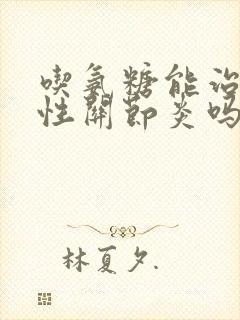 喫氨糖能治
性關節炎嗎
林夏夕.